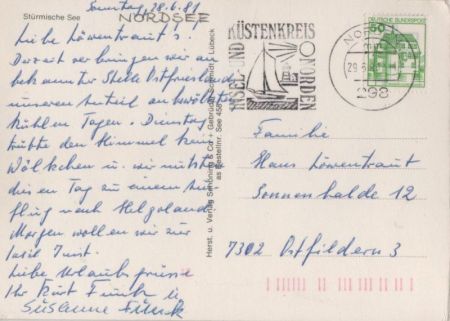 Stürmische See
NORDSEE
Sonntag, 28.6.81
Liebe Löwentraut's!
Derzeit verbringen wir an
bekannter Stelle Ostfriesland
unseren Anteil an bewölkten
kühlen Tagen. Dienstag
trübte den Himmel kein
Wölkchen u. wir nutzten
diesen Tag zu einem Aus-
flug nach Helgoland.
Morgen wollen wir zur
Insel Juist.
Liebe Urlaubsgrüsse
Ihr Kurt Funk u
Susanne Funk
Herst. u. Verlag Schöning & Co + Gebrüder Schmidt, Lübeck
Bestellnr. See
INSEL- UND
KÜSTENKREIS
NORDEN
NORDEN
29.6.
298
DEUTSCHE BUNDESPOST
50
Familie
Hans Löwentraut
Sonnenhalde 12
7302 Ostfildern 3